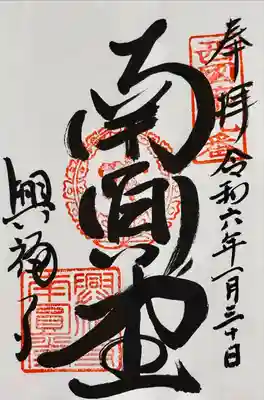 奉拝 令和六年一月三十日
南円堂
興福寺